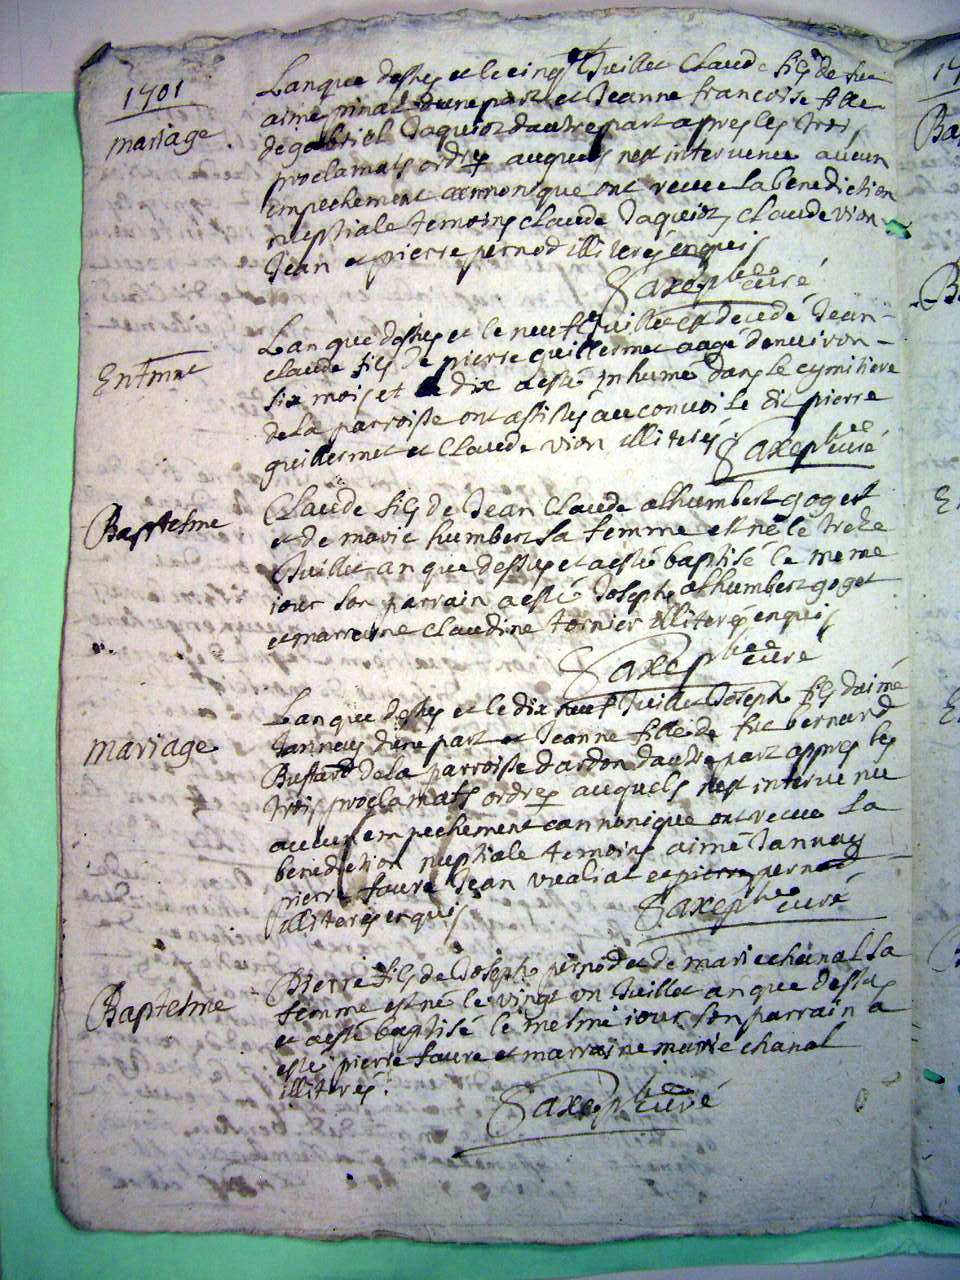 1701
mariage
Lan que dessus et le cinq Juillet Claude fils de feu
aimé pinal dune part et Jeanne francoise fille
de gabriel Jaquiot dautre part apres les trois
proclamats ordres auquels nest intervenu aucun
empechement cannonique ont receu la benediction
nuptiale temoins Claude Jaquiot, Claude vion
Jean et pierre pernod illiterés enquis
curé
Enterrmt
Lan que dessus et le neuf Juillet est decedé Jean
claude fils de pierre guillermet aagé denuiron
six mois et le dix a esté inhumé dans le cymitiere
de la parroisse ont assistés au conuoi le dit pierre
guillermet et Claude vion illiterés
curé
Baptesme
Claude fils de Jean Claude alhumbert goget
et de marie humbert sa femme est né le treze
Juillet an que dessus et a esté baptisé le meme
iour son parrain a esté Joseph alhumbert goget
et marreine Claudine tornier illiterés enquis
curé
mariage
Lan que dessus et le dix neuf Juillet Joseph fils daimé
Jannay dune part et Jeanne fille de feu bernard
Bustard de la parroisse dardon dautre part appres les
trois proclamats ordres auquels nest interuenu
aucun empechement cannonique ont receu la
benediction nuptiale temoins aimé Jannay
pierre faure Jean et pierre pernod
illiterés enquis
curé
Baptesme
Pierre fils de Joseph pernod et de marie chanal sa
femme est né le vingt un Juillet an que dessus
et a esté baptisé le mesme iour son parrain a
esté pierre faure et marraine marie chanal
illiterés.
curé